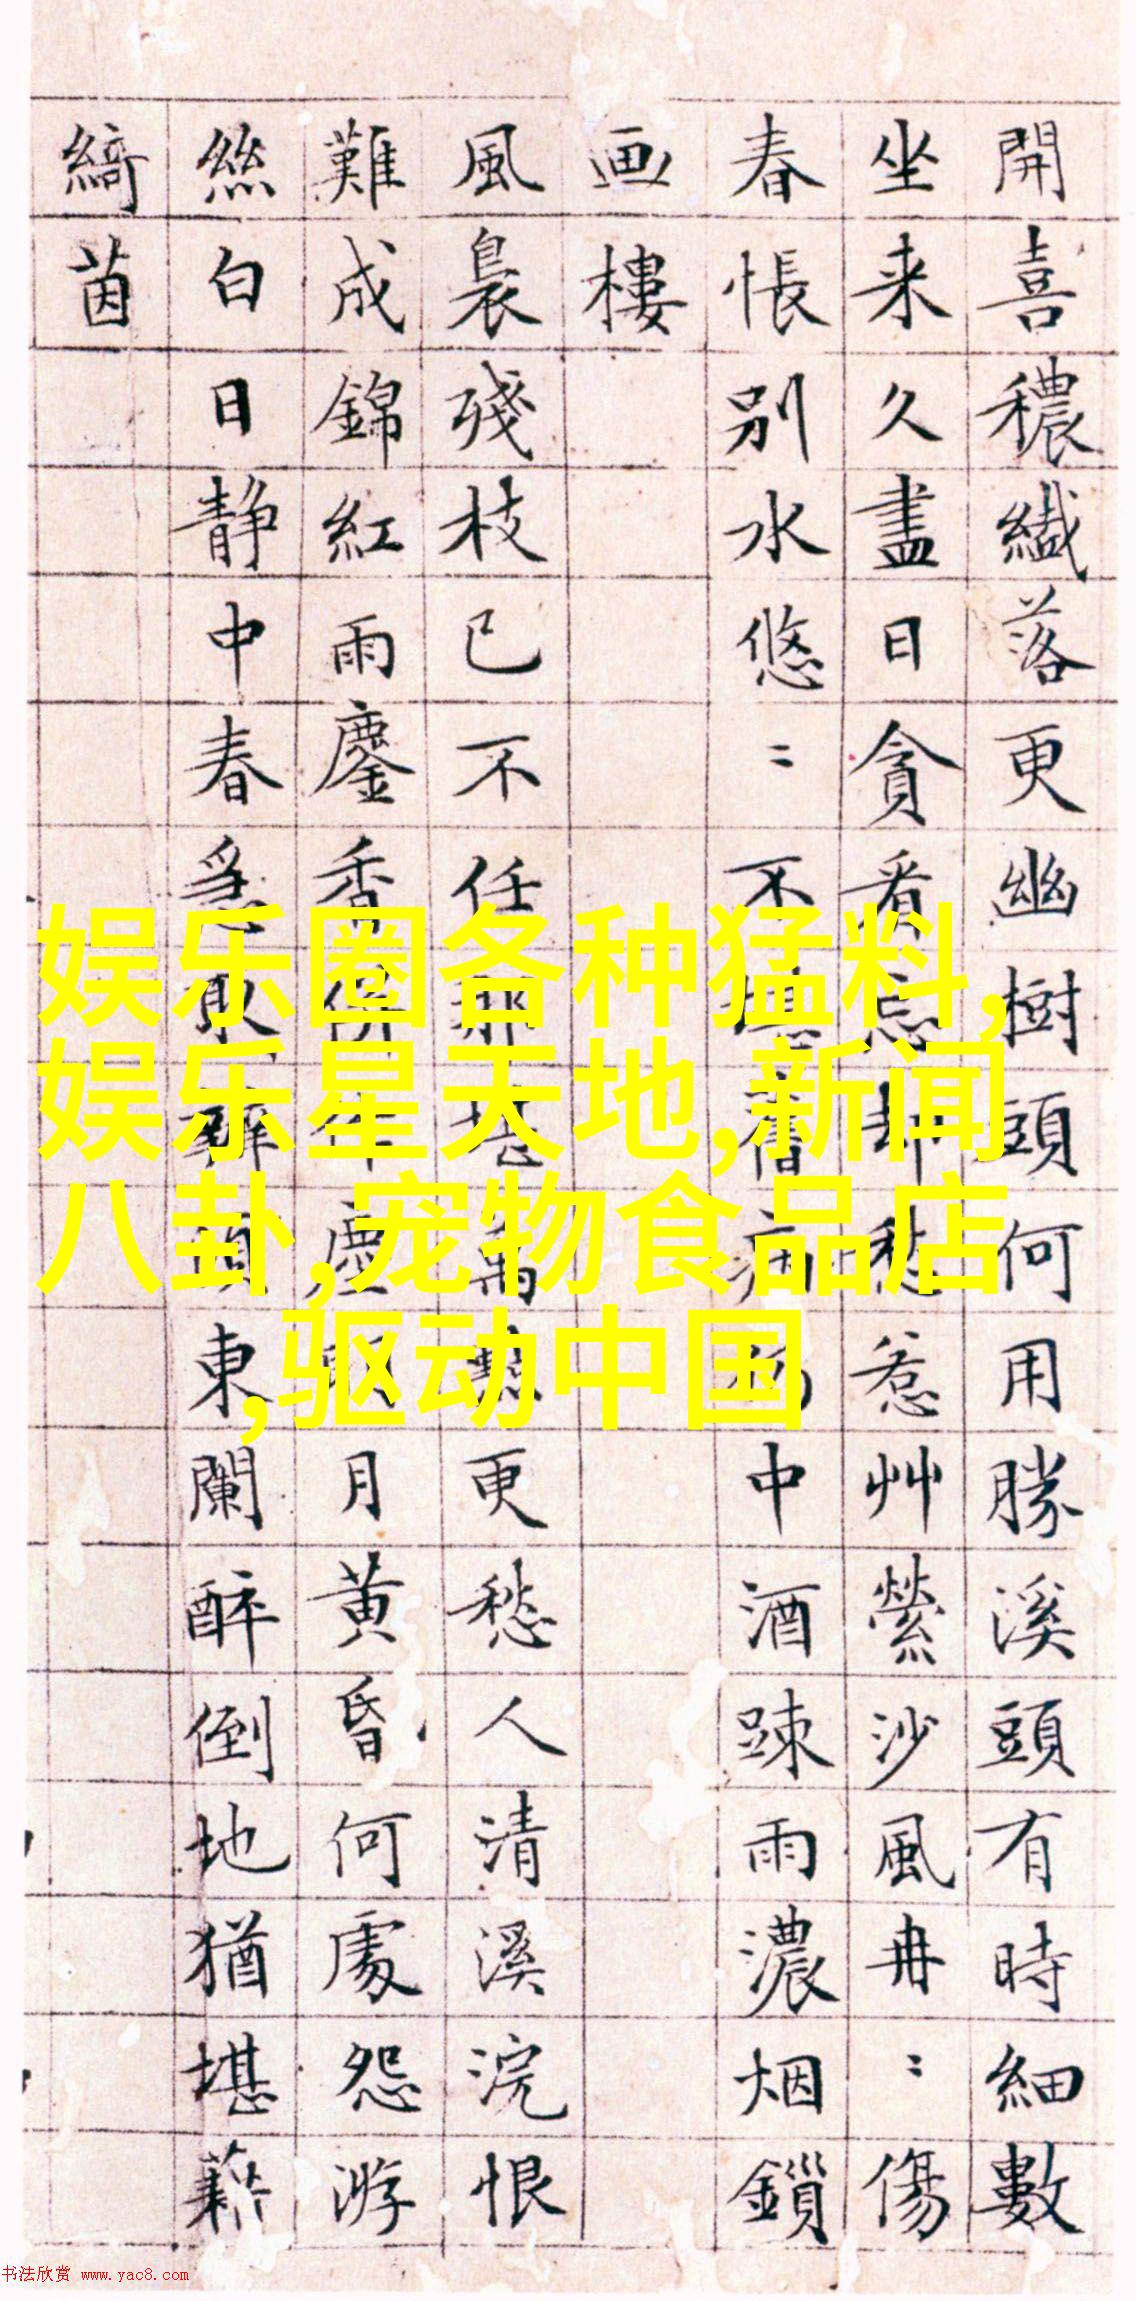 開喜穠纖落更幽樹頭何用勝溪頭有時細數
坐来久盡日貪看忘却愁惹艸縈沙風冉〻傷
春悵別水悠〻不堪舊病中酒踈雨濃烟鎖
画樓
風裊殘枝已不任那堪萬更愁人清溪浣恨
難成錦紅雨鏖香併作塵月黄昏何處怨游
絲白日静中春東闌醉倒地猶堪藉
綺茵
娱乐圈各种猛料,
娱乐星天地,新闻
八卦,宠物食品店
,驱动中国
书法欣赏 www.yac8.com